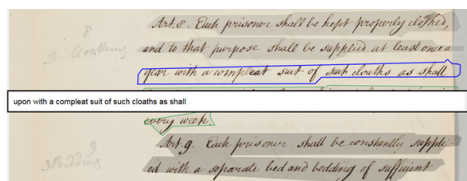 8
Art. 8. Each prisoner shall be kept properly clothed,
2. Cloathing
and to that purpose shall be supplied at least once a
year with a compleat suit of such cloaths as shall
upon with a compleat suit of such cloaths as shall
every week.
9
Art. 9. Each prisoner shall be constantly suppli-
3. Bedding
ed with a separate bed and bedding of sufficient